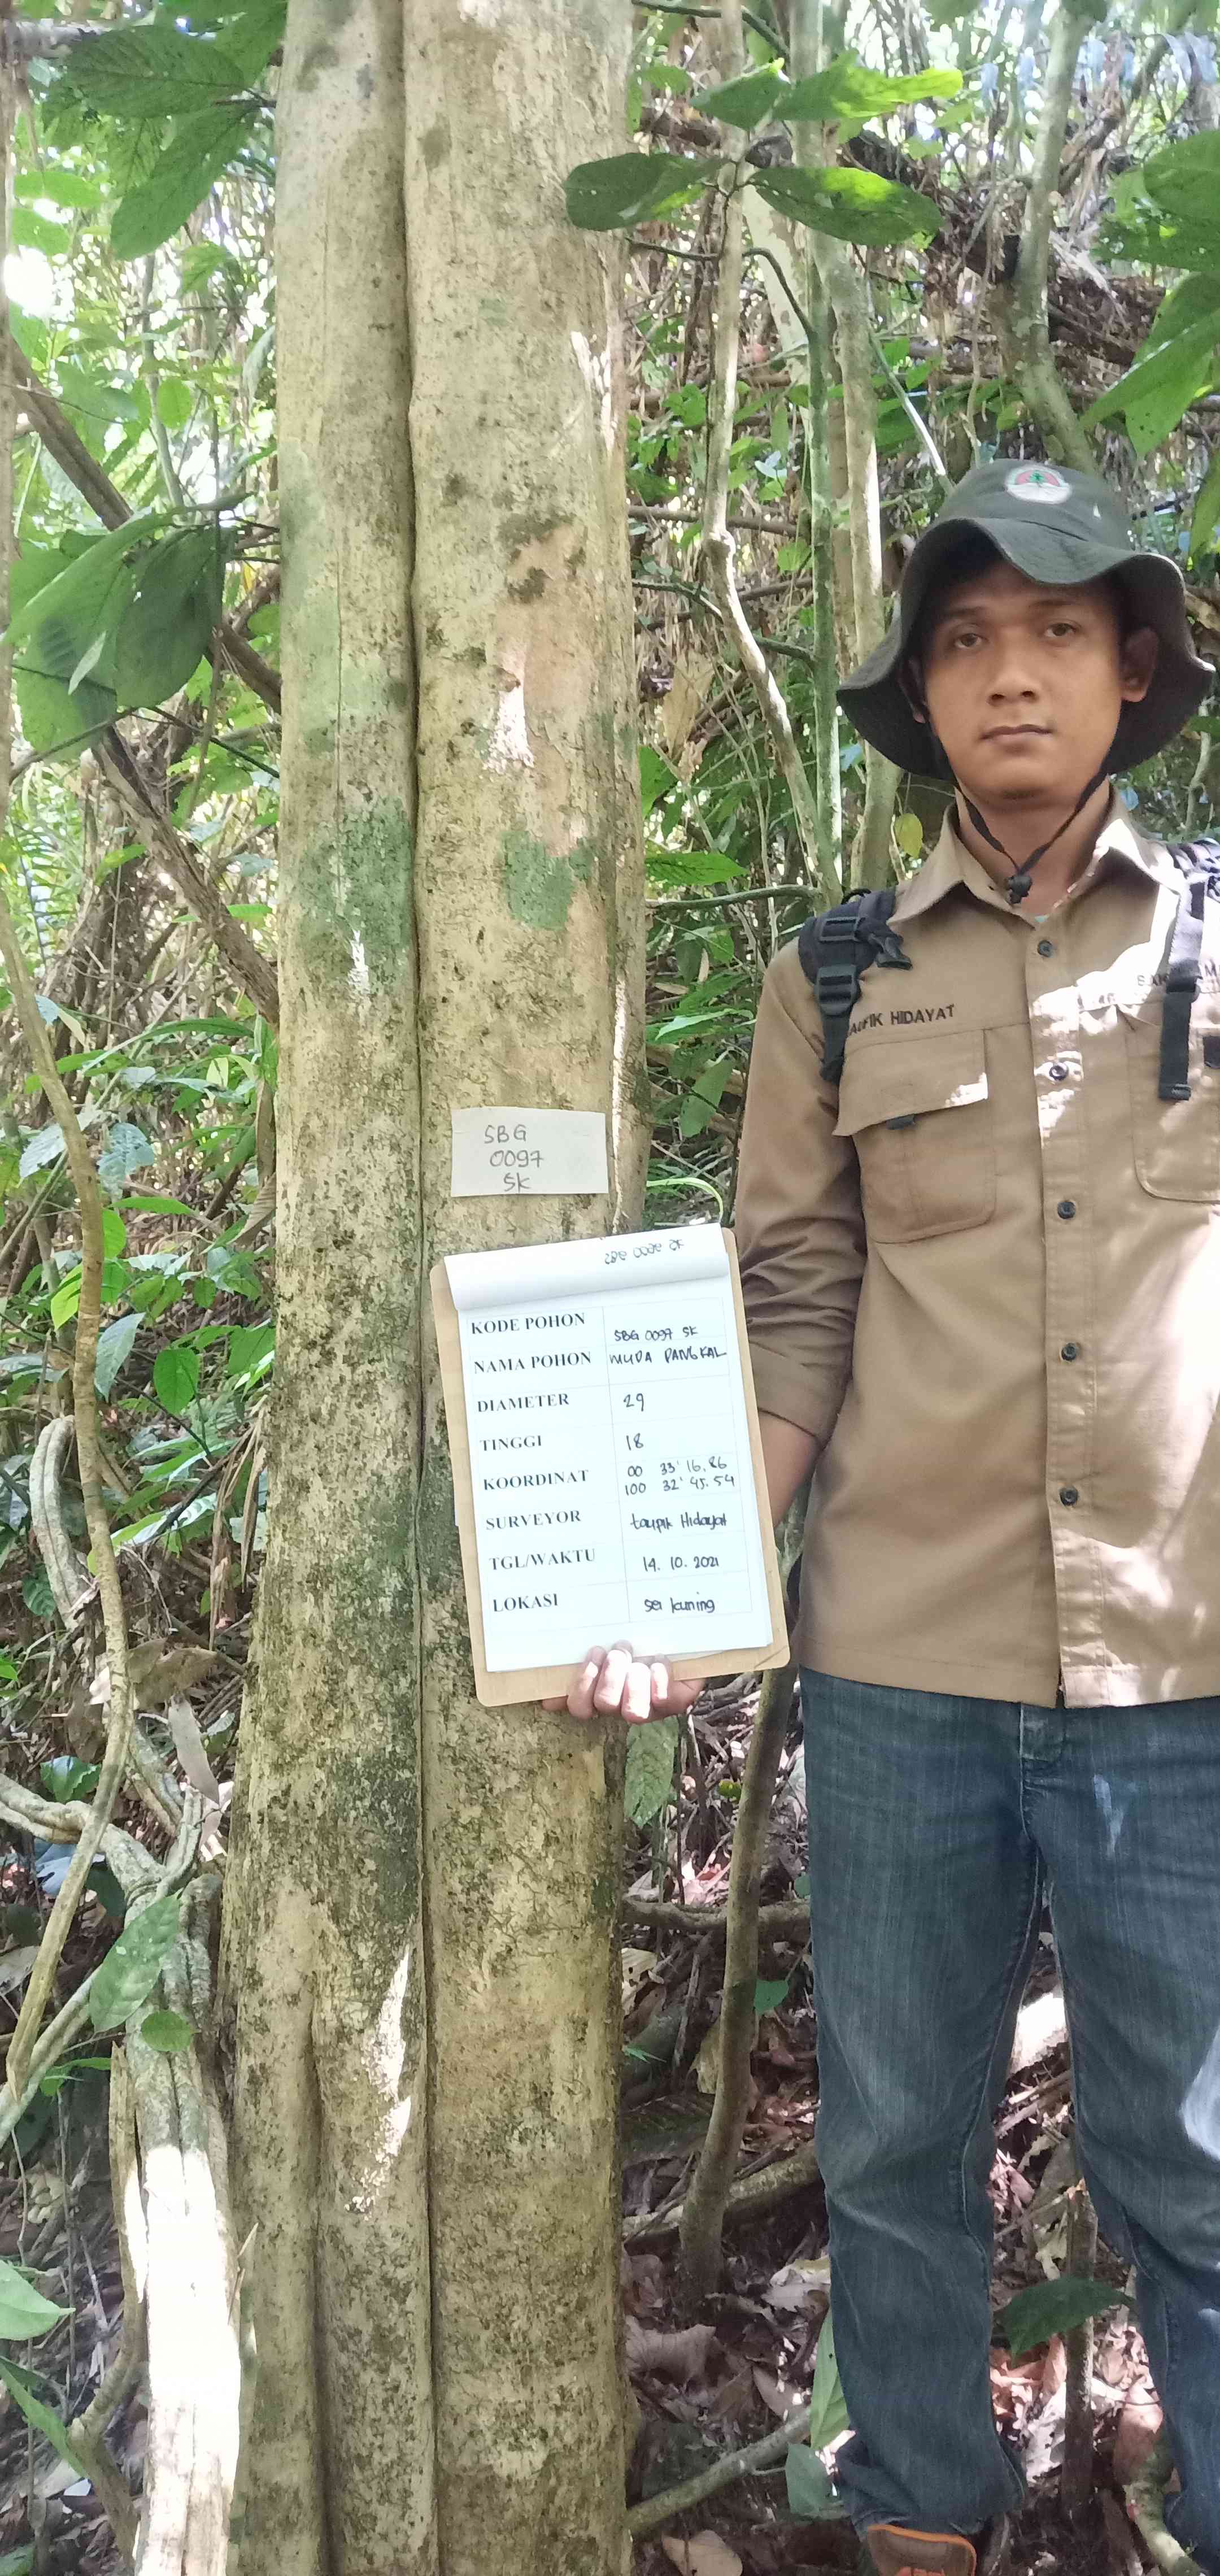 AUFIK HIDAYAT
SBG
0097
SK
KODE POHON SBG 0097 SK
NAMA POHON MUDA PANGKAL
DIAMETER 29
TINGGI 18
KOORDINAT 00 33' 16.86
100 32' 45.54
SURVEYOR taupik Hidayat
TGL/WAKTU 14. 10. 2021
LOKASI sei kuning